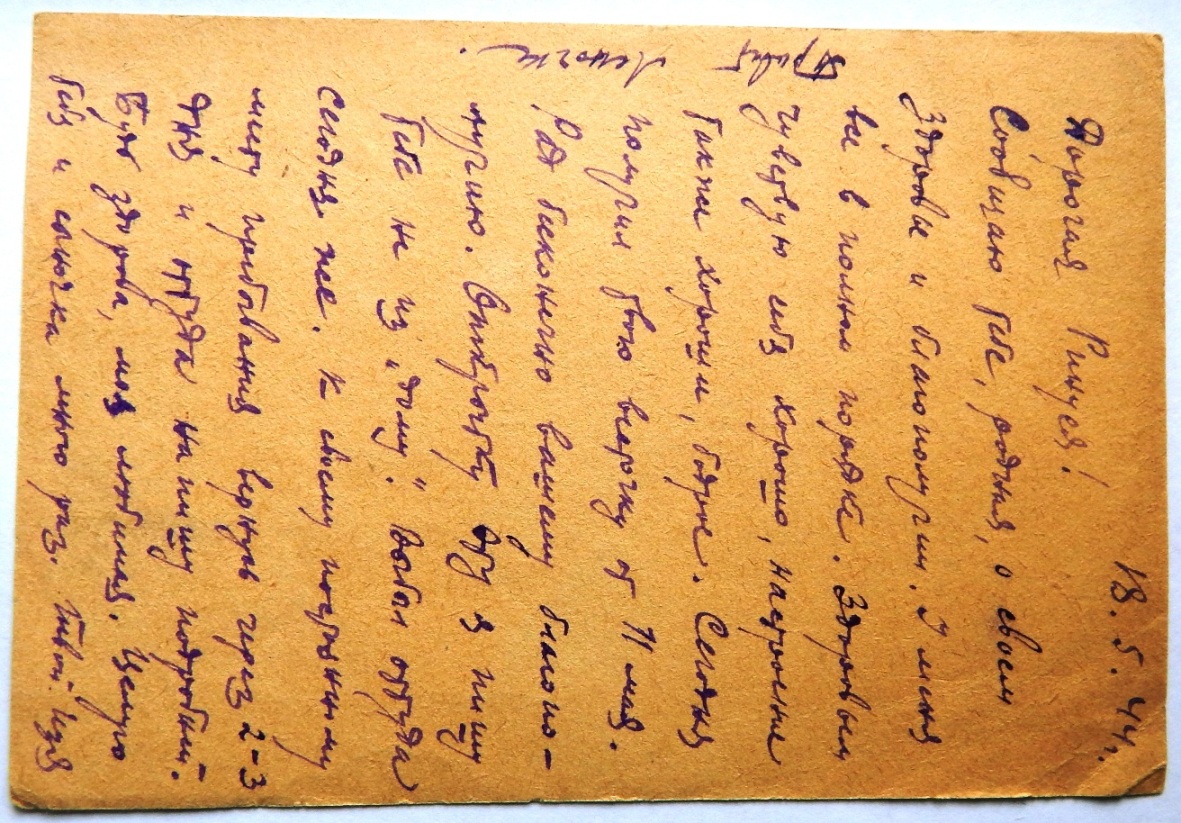 18.5.44г.
Дорогая Ринуся!
Сообщаю тебе, родная, о своем
здоровье и благополучии. У меня
все в полном порядке. Здоровьем
чувствую себя хорошо, настроение
также хорошее, бодрое. Сегодня
получил твою весточку от 11 мая.
Рад бесконечно вашему благопо-
лучию. Открытку эту я пишу
тебе не из „дому". Выбыл оттуда
сегодня же. К своему постоянному
месту пребывания вернусь через 2-3
дня и оттуда напишу подробней.
Будь здорова, моя любимая. Целую
тебя и сыночка много раз. Твой Изя
Привет Леночке.